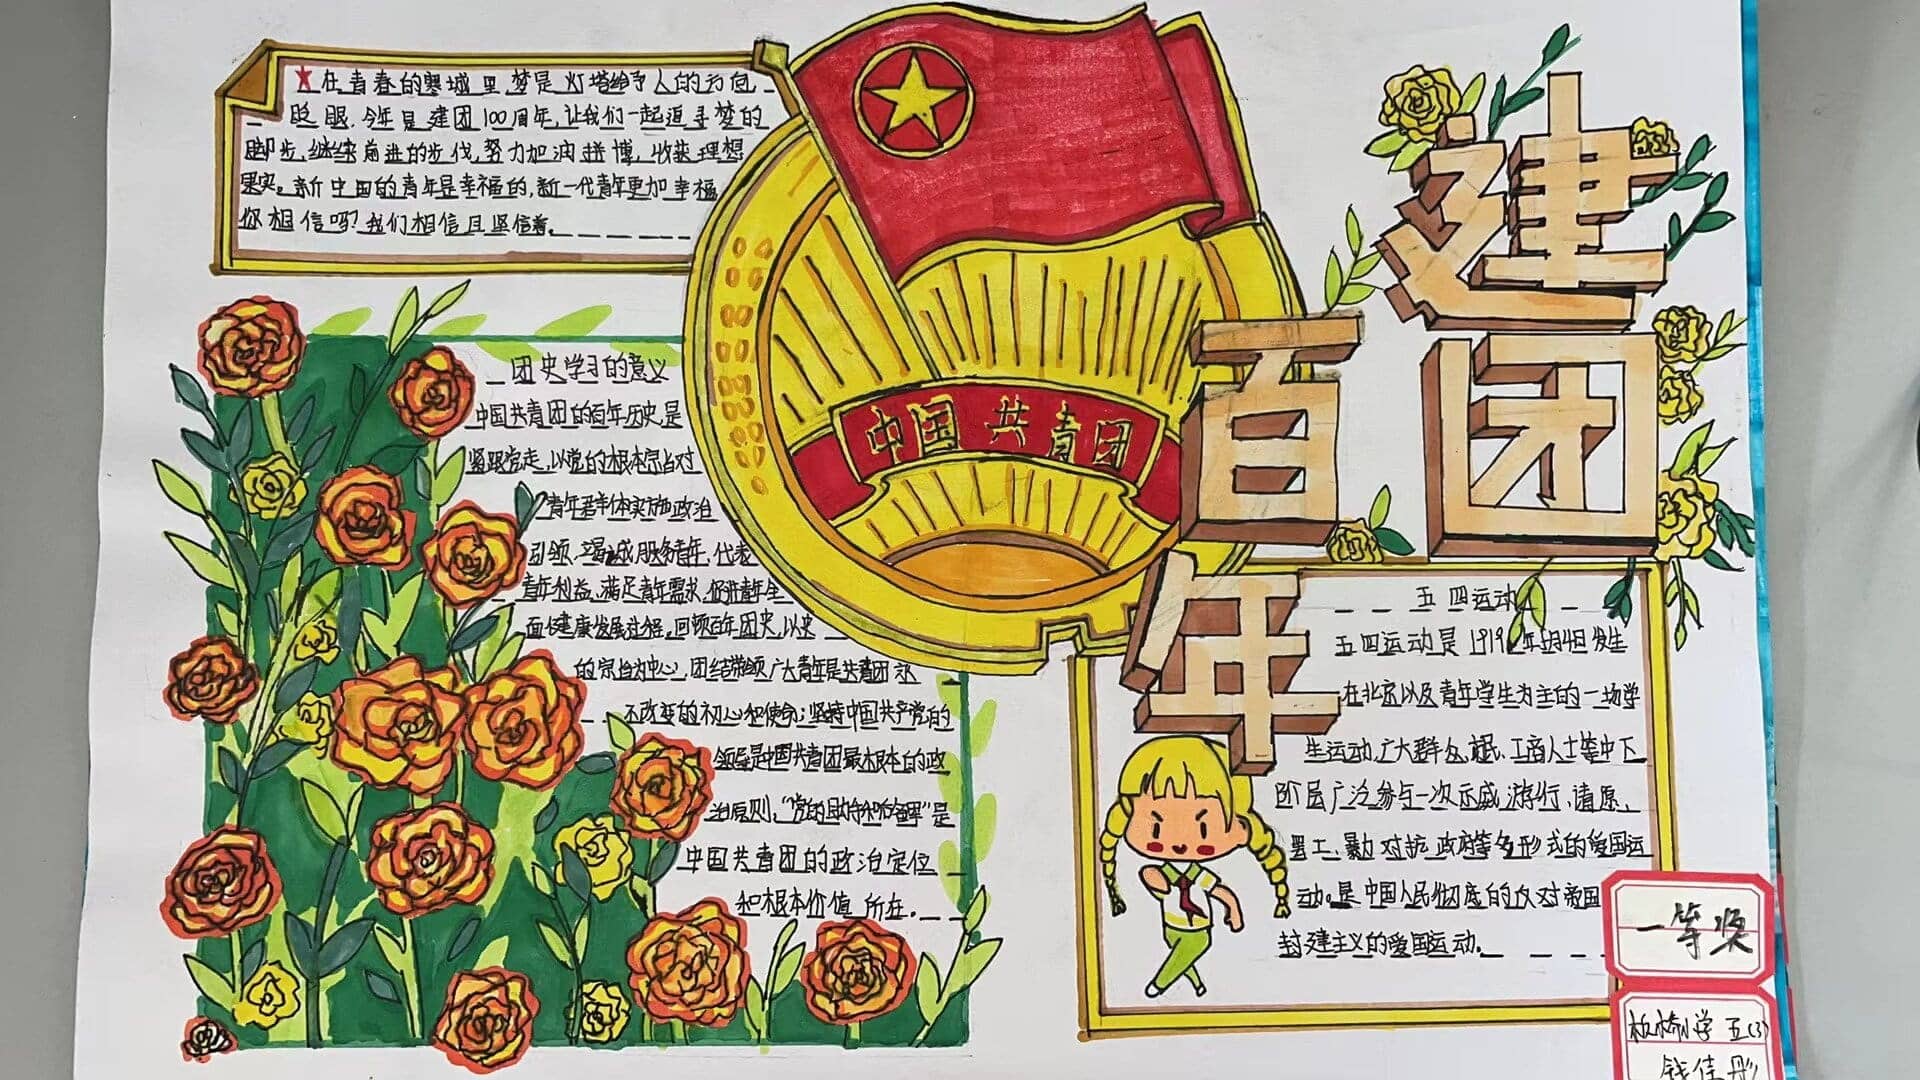 在青春的寒城里,梦是灯塔给予人的方向
眨眼,今年是建团100周年,让我们一起追寻梦的
脚步,继续前进的步伐,努力加油拼博,收获理想
果实。新中国的青年是幸福的,新一代青年更加幸福
你相信吗?我们相信且坚信着。
中国共青团
建团
百年
团史学习的意义
中国共青团的百年历史,是
紧跟党走,以党的根本宗旨对
青年群体实施政治
引领、竭诚服务青年、代表
青年利益、满足青年需求,促进青年全
面健康发展过程。回顾百年团史,以史
的宗旨为中心,团结带领广大青年是共青团永
不改变的初心和使命;坚持中国共产党的
领导是中国共青团最根本的政
治原则,“党的助手和后备军”是
中国共青团的政治定位
和根本价值所在。
五四运动
五四运动是1919年5月4日发生
在北京以及青年学生为主的一场学
生运动,广大群众、市民、工商人士等中下
阶层广泛参与一次示威游行、请愿、
罢工、暴力对抗政府等多形式的爱国运
动。是中国人民彻底的反对帝国
封建主义的爱国运动。
一等奖
板桥小学 五(3)
钱佳彤